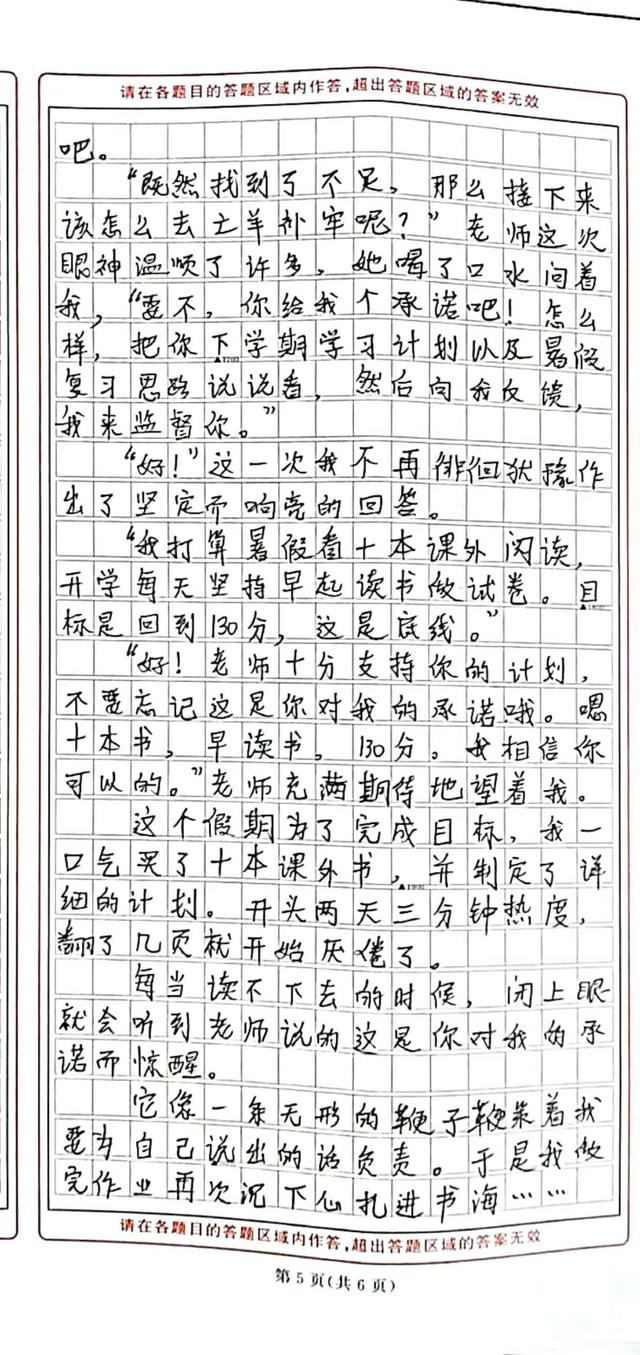 请在各题目的答题区域内作答,超出答题区域的答案无效
吧。
“既然找到了不足,那么接下来
该怎么去亡羊补牢呢?”老师这次
眼神温顺了许多,她喝了口水问着
我,“要不,你给我个承诺吧!怎么
样,把你下学期学习计划以及暑假
复习思路说说看,然后向我反馈,
我来监督你。”
“好!”这一次我不再徘徊犹豫作
出了坚定而响亮的回答。
“我打算暑假看十本课外阅读,
开学每天坚持早起读书做试卷。目
标是回到130分,这是底线。”
“好!老师十分支持你的计划,
不要忘记这是你对我的承诺哦。嗯
十本书,早读书,130分。我相信你
可以的。”老师充满期待地望着我。
这个假期为了完成目标,我一
口气买了十本课外书,并制定了详
细的计划。开头两天三分钟热度,
翻了几页就开始厌倦了。
每当读不下去的时候,闭上眼
就会听到老师说的这是你对我的承
诺而惊醒。
它像一条无形的鞭子鞭策着我
要为自己说出的话负责。于是我做
完作业再次沉下心扎进书海……
请在各题目的答题区域内作答,超出答题区域的答案无效
第5页(共6页)